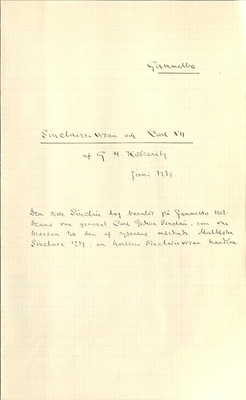 Gammelbo
Sinclairs-visan och Carl XII
af G H
Juni 1939
Den siste Sinclair dog barnlös på Gammelbo
Denne var general Carl Gideon Sinclair, som var
brorson till den af ryssarne mördade Malkolm
Sinclair 1739, om hvilken Sinclairsvisan handlar.